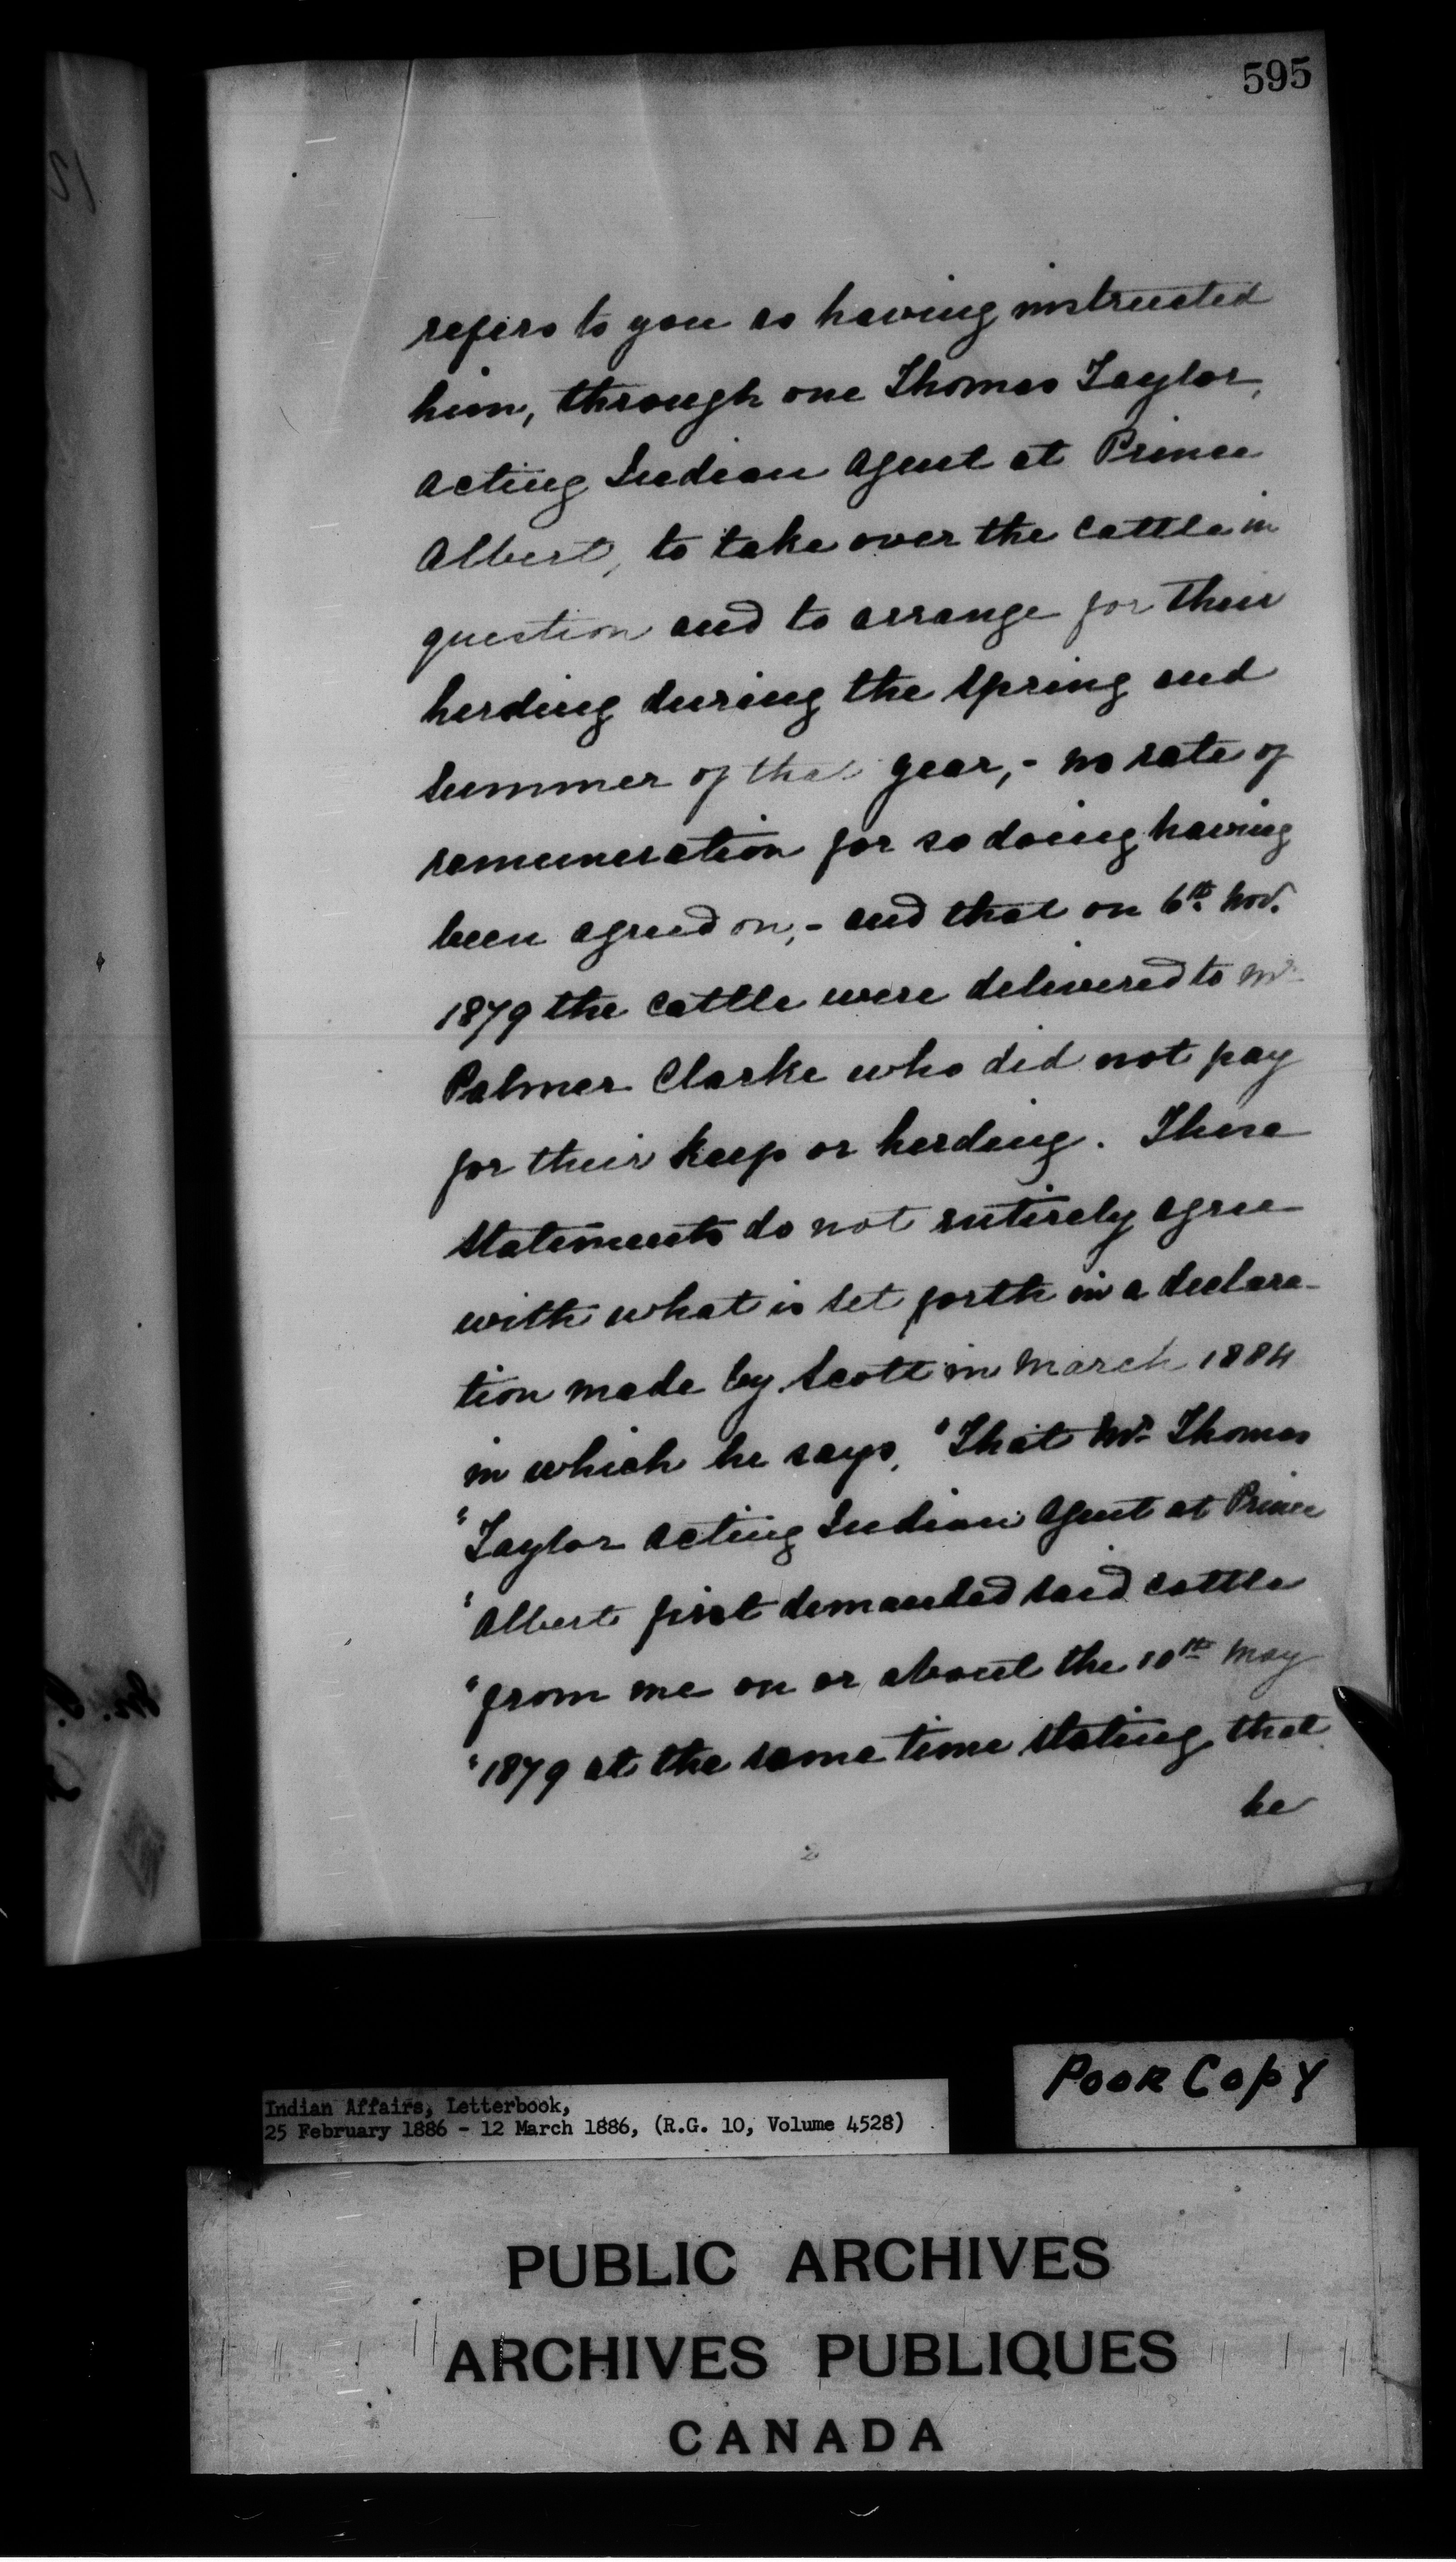 595
refers to you as having instructed
him, through one Thomas Taylor,
Acting Indian Agent at Prince
Albert, to take over the cattle in
question and to arrange for their
herding during the Spring and
Summer of that year,- no rate of
remuneration for so doing having
been agreed on,- and that on 6th Nov.
1879 the cattle were delivered to Mr
Palmer Clarke who did not pay
for their keep or herding. These
statements do not entirely agree
with what is set forth in a declara-
tion made by Scott in March 1884
in which he says, "That Mr Thomas
"Taylor Acting Indian Agent at Prince
"Albert first demanded said cattle
"from me on or about the 10th May
"1879 at the same time stating that
he
2
Poor Copy
Indian Affairs, Letterbook,
25 February 1886 - 12 March 1886, (R.G. 10, Volume 4528)
PUBLIC ARCHIVES
ARCHIVES PUBLIQUES
CANADA